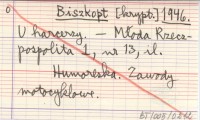 Biszkopt [krypt.] 1946.
U harcerzy. — Młoda Rzecz-
pospolita 1, nr 13, il.
Humoreska. Zawody
motocyklowe.
BI/003/0212